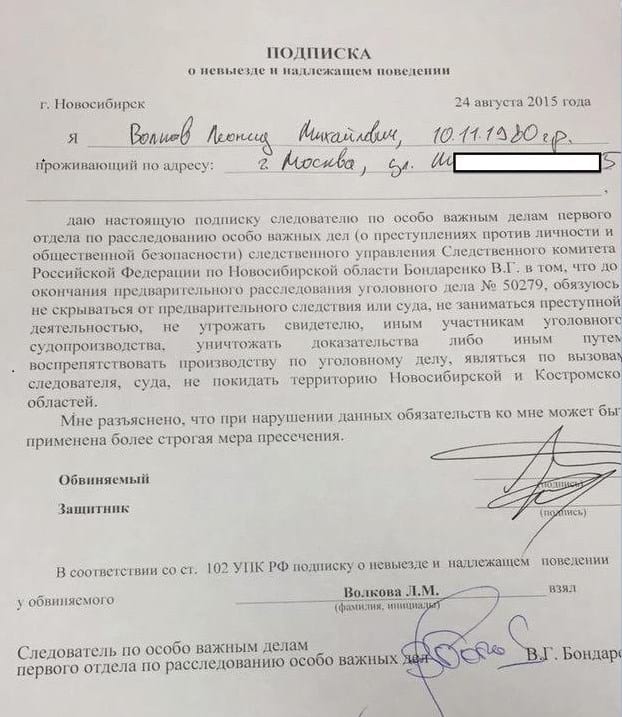 ПОДПИСКА
о невыезде и надлежащем поведении
г. Новосибирск 24 августа 2015 года
я Волков Леонид Михайлович, 10.11.1980 г.р.
проживающий по адресу: г. Москва, ул. 5
даю настоящую подписку следователю по особо важным делам первого
отдела по расследованию особо важных дел (о преступлениях против личности и
общественной безопасности) следственного управления Следственного комитета
Российской Федерации по Новосибирской области Бондаренко В.Г. в том, что до
окончания предварительного расследования уголовного дела № 50279, обязуюсь
не скрываться от предварительного следствия или суда, не заниматься преступной
деятельностью, не угрожать свидетелю, иным участникам уголовного
судопроизводства, уничтожать доказательства либо иным путем
воспрепятствовать производству по уголовному делу, являться по вызовам
следователя, суда, не покидать территорию Новосибирской и Костромско
областей.
Мне разъяснено, что при нарушении данных обязательств ко мне может быт
применена более строгая мера пресечения.
Обвиняемый
(подпись)
Защитник
(подпись)
В соответствии со ст. 102 УПК РФ подписку о невыезде и надлежащем поведении
у обвиняемого Волкова Л.М. взял
(фамилия, инициалы)
Следователь по особо важным делам
первого отдела по расследованию особо важных дел В.Г. Бондаре